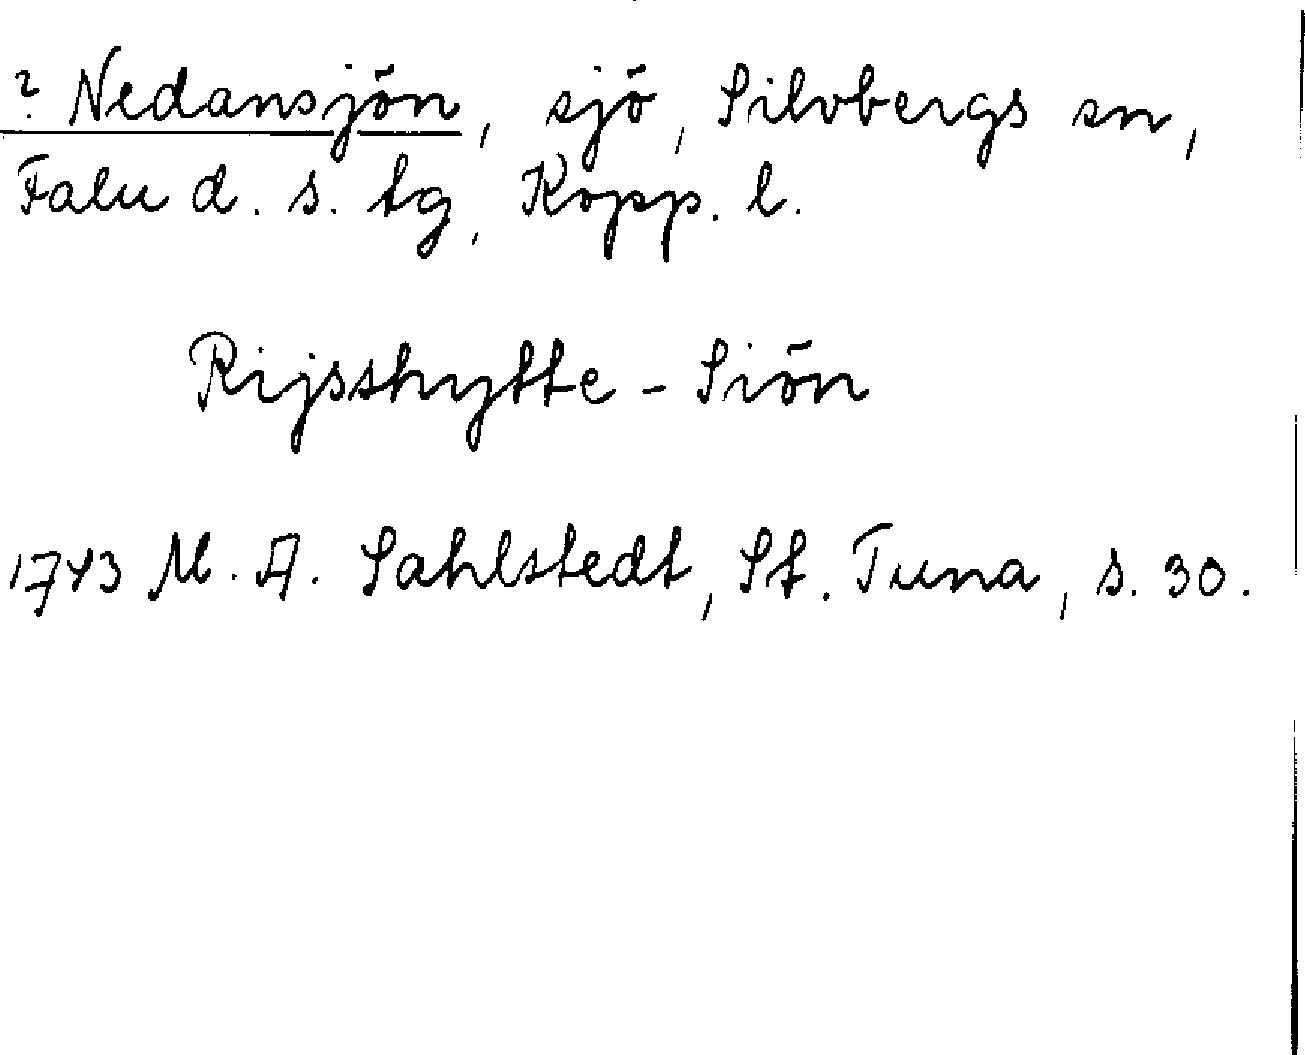 ? Nedansjön, sjö, Silvbergs sn,
Falu d. s. tg, Kopp. l.
Rijsshytte - Siön
1743 M. A. Sahlstedt, St. Tuna, s. 30.